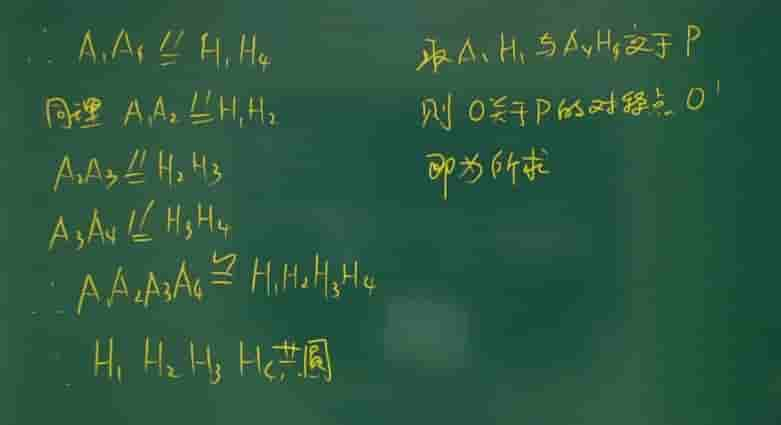 ∴ A₁A₄ ∥= H₁H₄
同理 A₁A₂ ∥= H₁H₂
A₂A₃ ∥= H₂H₃
A₃A₄ ∥= H₃H₄
∴ A₁A₂A₃A₄ ≌ H₁H₂H₃H₄
∴ H₁ H₂ H₃ H₄共圆
取A₁H₁与A₄H₄交于P
则 O关于P的对称点 O'
即为所求